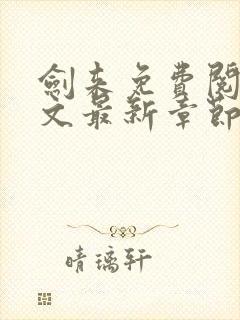 劍来免費閱
文最新章節
晴璃轩